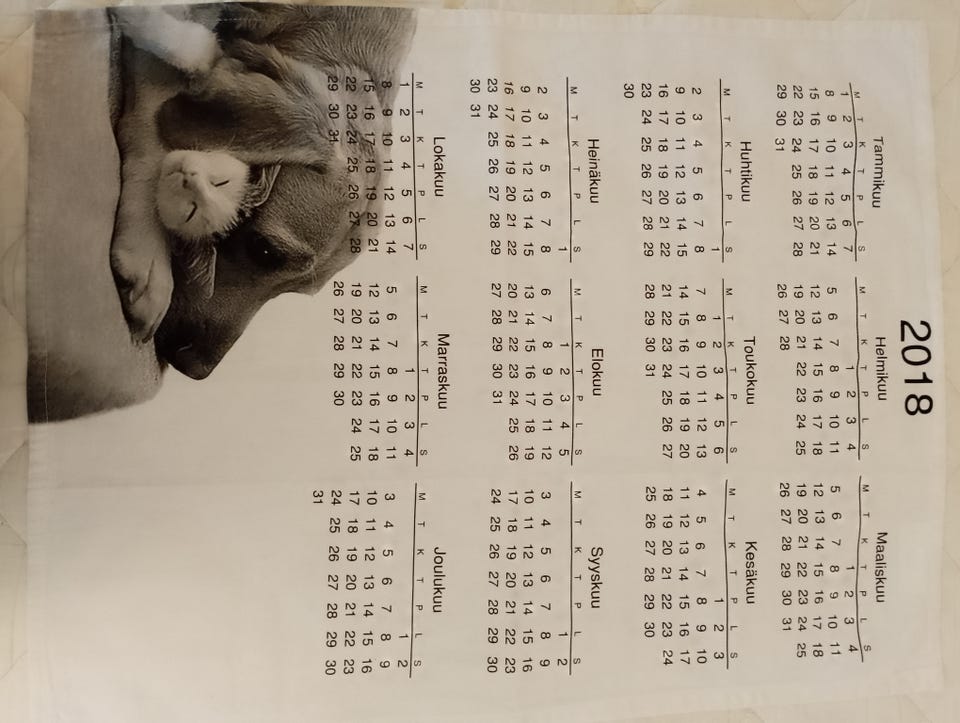 2018
Tammikuu
M T K T P L S
1 2 3 4 5 6 7
8 9 10 11 12 13 14
15 16 17 18 19 20 21
22 23 24 25 26 27 28
29 30 31
Helmikuu
M T K T P L S
1 2 3 4
5 6 7 8 9 10 11
12 13 14 15 16 17 18
19 20 21 22 23 24 25
26 27 28
Maaliskuu
M T K T P L S
1 2 3 4
5 6 7 8 9 10 11
12 13 14 15 16 17 18
19 20 21 22 23 24 25
26 27 28 29 30 31
Huhtikuu
M T K T P L S
1
2 3 4 5 6 7 8
9 10 11 12 13 14 15
16 17 18 19 20 21 22
23 24 25 26 27 28 29
30
Toukokuu
M T K T P L S
1 2 3 4 5 6
7 8 9 10 11 12 13
14 15 16 17 18 19 20
21 22 23 24 25 26 27
28 29 30 31
Kesäkuu
M T K T P L S
1 2 3
4 5 6 7 8 9 10
11 12 13 14 15 16 17
18 19 20 21 22 23 24
25 26 27 28 29 30
Heinäkuu
M T K T P L S
1
2 3 4 5 6 7 8
9 10 11 12 13 14 15
16 17 18 19 20 21 22
23 24 25 26 27 28 29
30 31
Elokuu
M T K T P L S
1 2 3 4 5
6 7 8 9 10 11 12
13 14 15 16 17 18 19
20 21 22 23 24 25 26
27 28 29 30 31
Syyskuu
M T K T P L S
1 2
3 4 5 6 7 8 9
10 11 12 13 14 15 16
17 18 19 20 21 22 23
24 25 26 27 28 29 30
Lokakuu
M T K T P L S
1 2 3 4 5 6 7
8 9 10 11 12 13 14
15 16 17 18 19 20 21
22 23 24 25 26 27 28
29 30 31
Marraskuu
M T K T P L S
1 2 3 4
5 6 7 8 9 10 11
12 13 14 15 16 17 18
19 20 21 22 23 24 25
26 27 28 29 30
Joulukuu
M T K T P L S
1 2
3 4 5 6 7 8 9
10 11 12 13 14 15 16
17 18 19 20 21 22 23
24 25 26 27 28 29 30
31